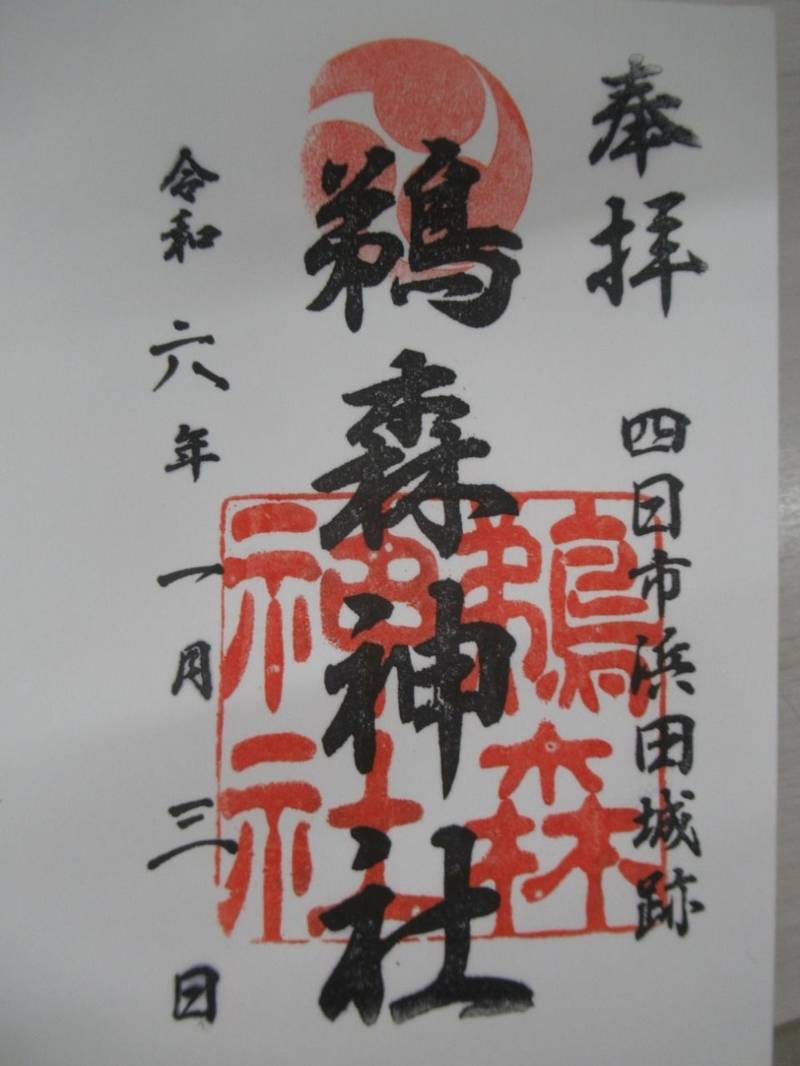 奉拝
四日市浜田城跡
鵜森神社
鵜森
神社
令和六年一月三日